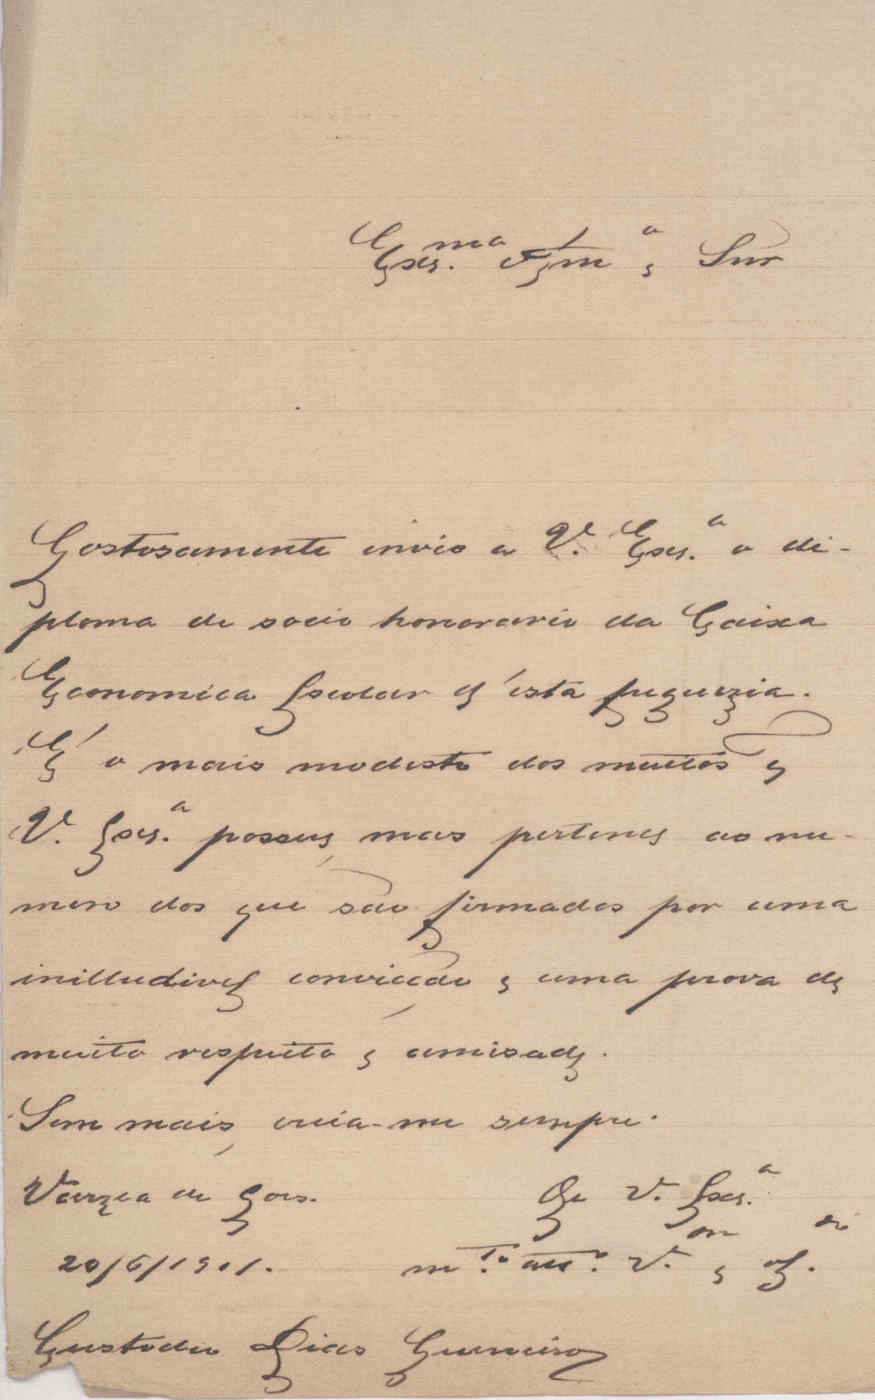 Exc.ma Sr.a e Snr
Gostosamente invio a V. Exc.a o di-
ploma de socio honorario da Caixa
Economica Escolar d'esta freguezia.
É o mais modesto dos muitos q
V. Exc.a possue, mas pertence ao nu-
mero dos que são firmados por uma
inilludivel convicção e uma prova de
muito respeito e amisade.
Sem mais, creia-me sempre.
Varzea de Goes. De V. Exc.a
20/6/1901. m.to att.o V.or e
Custodio Dias Guerreiro